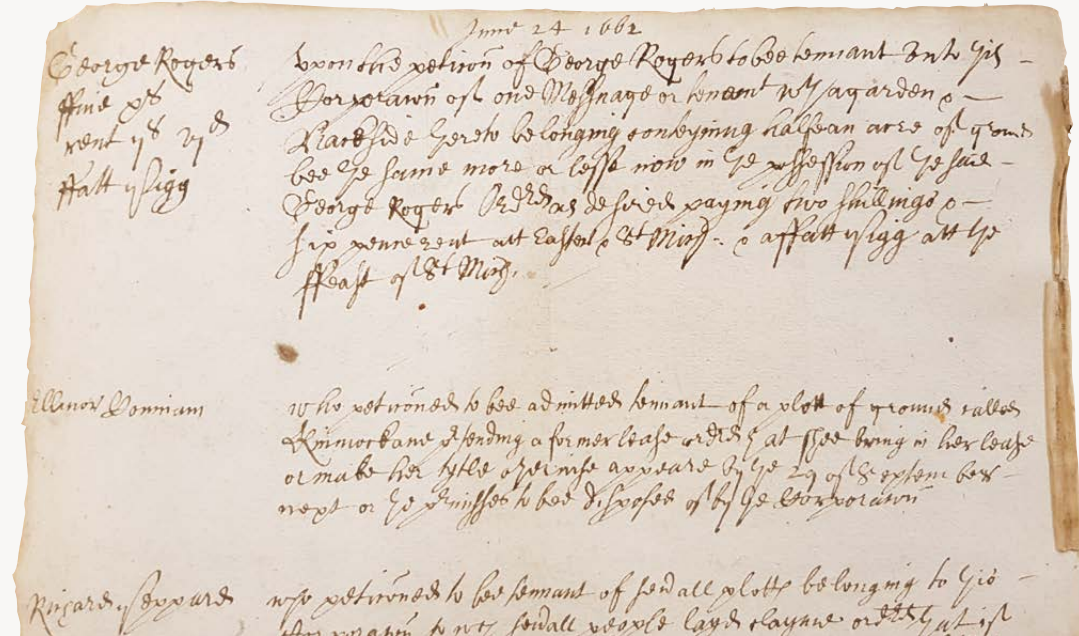 June 24 1662
George Rogers
ffine
rent
ffatt pigg
Vpon the peticon of George Rogers to bee tennant vnto this
Corporacon of one Messuage or tenemt wth a garden &
Backside thereto belonging conteyning halfe an acre of ground
bee the same more or lesse now in the possession of the said
George Rogers Ordred as desired paying two shillings &
six pence rent att Easter & St Mich: & a ffatt pigg att the
ffeast of St Mich.
Ellinor
who peticoned to bee admitted tennant of a plott of ground called
prtending a former lease ordred yt shee bring in her lease
or make her tytle otherwise appeare by the 29 of September
next or the prmisses to bee disposed of by the Corporacon
Richard
who peticoned to bee tennant of seuall plotts belonging to this
Corporacon to wch seuall people layd clayme ordred that